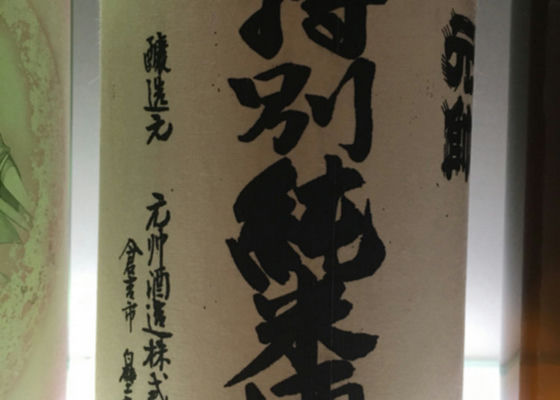 元帥
特別純米
醸造元 元帥酒造株式
倉吉市